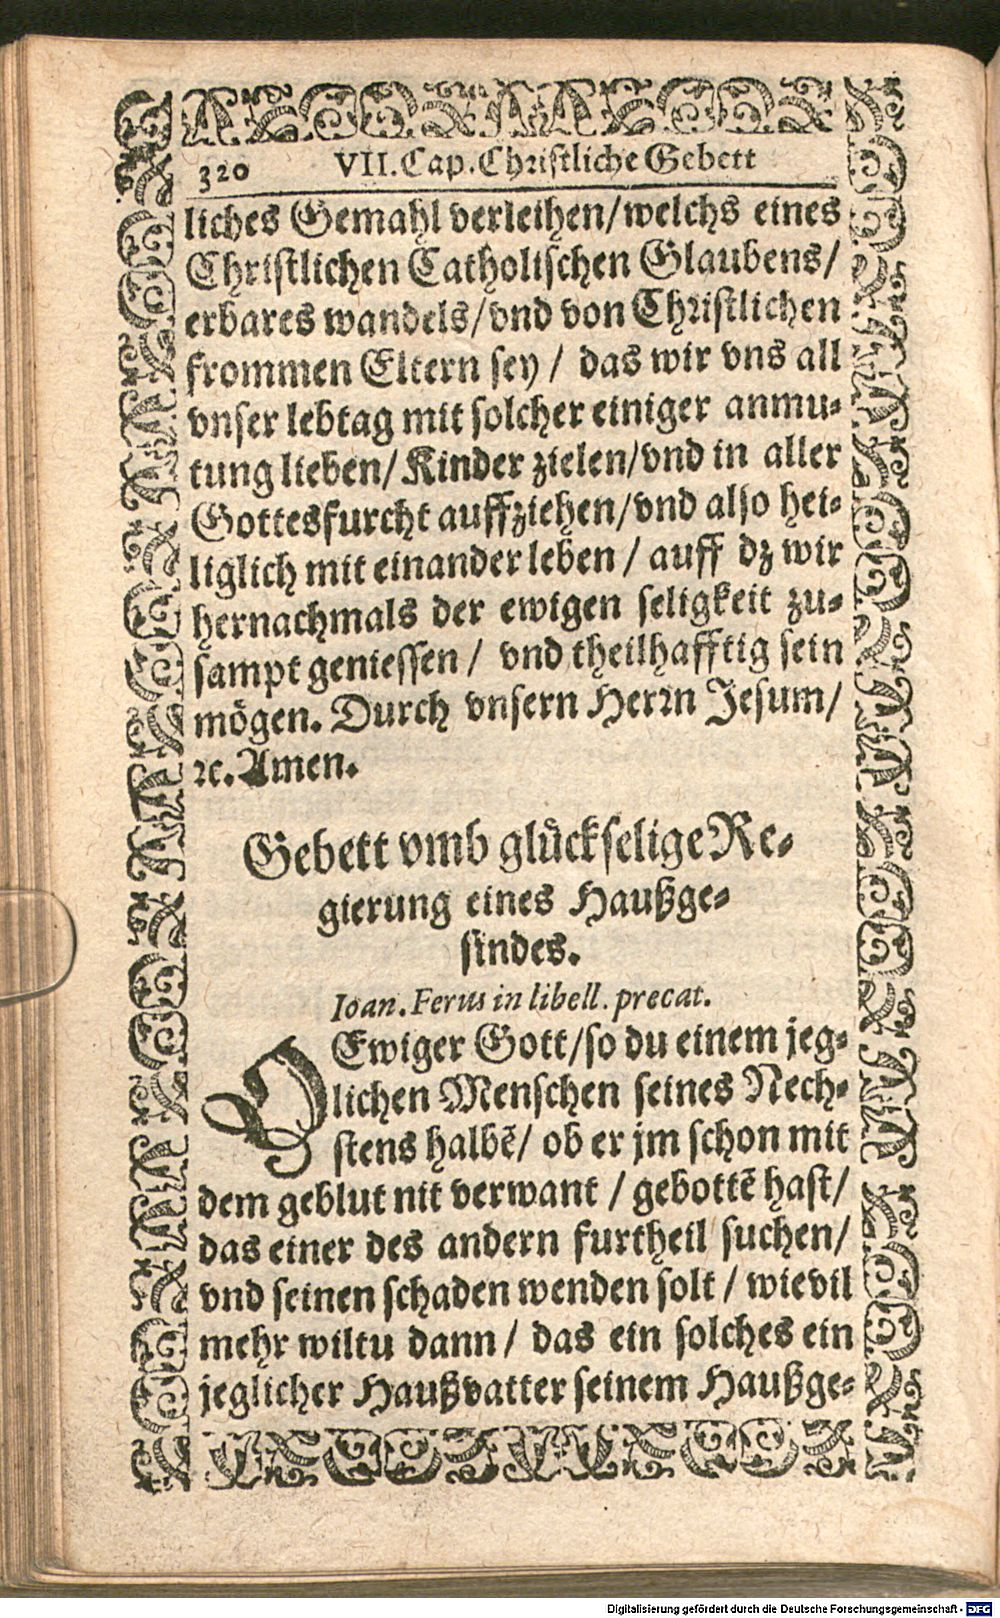 320 VII. Cap. Christliche Gebett
liches Gemahl verleihen/welchs eines
Christlichen Catholischen Glaubens/
erbares wandels/vnd von Christlichen
frommen Eltern sey / das wir vns all
vnser lebtag mit solcher einiger anmu-
tung lieben/Kinder zielen/vnd in aller
Gottesfurcht auffziehen/vnd also hei-
liglich mit einander leben / auff dz wir
hernachmals der ewigen seligkeit zu-
sampt geniessen / vnd theilhafftig sein
mögen. Durch vnsern Herrn Jesum/
ꝛc. Amen.
Gebett vmb glückselige Re-
gierung eines Haußge-
sindes.
Ioan. Ferus in libell. precat.
O Ewiger Gott/so du einem jeg-
lichen Menschen seines Nech-
stens halbẽ/ ob er jm schon mit
dem geblut nit verwant / gebottẽ hast/
das einer des andern furtheil suchen/
vnd seinen schaden wenden solt / wievil
mehr wiltu dann / das ein solches ein
jeglicher Haußvatter seinem Haußge-
Digitalisierung gefördert durch die Deutsche Forschungsgemeinschaft - DFG